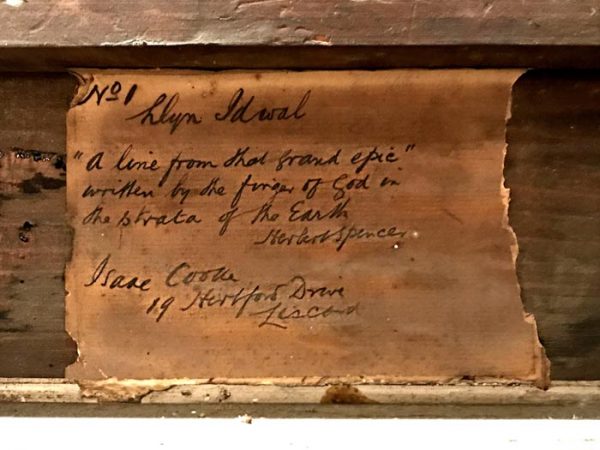 No 1
Llyn Idwal
"A line from that grand epic"
written by the finger of God in
the strata of the Earth
Herbert Spencer
Isaac Cooke
19 Hertford Drive
Liscard